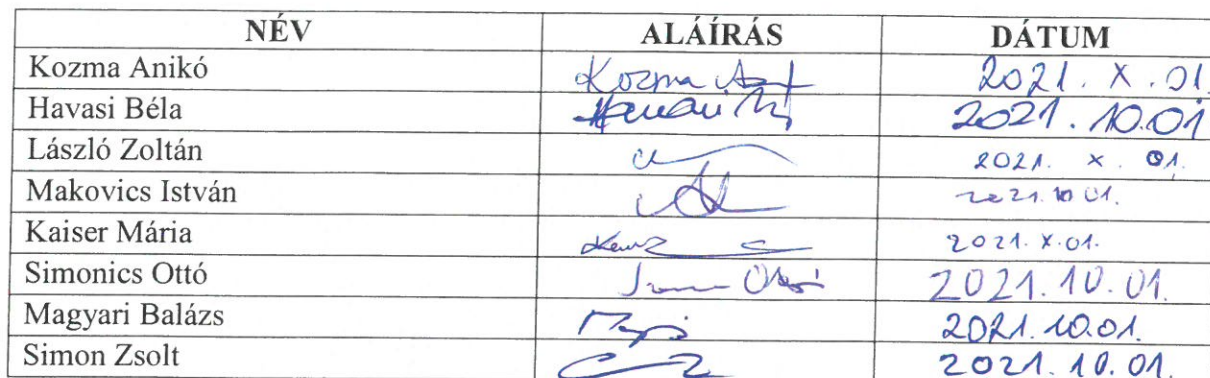 NÉV ALÁÍRÁS DÁTUM
Kozma Anikó Kozma 2021. X. 01.
Havasi Béla 2021. 10.01
László Zoltán 2021. X. 01.
Makovics István 2021. 10 01.
Kaiser Mária 2021. X. 01.
Simonics Ottó Ottó 2021. 10. 01.
Magyari Balázs 2021. 10.01.
Simon Zsolt 2021. 10. 01.